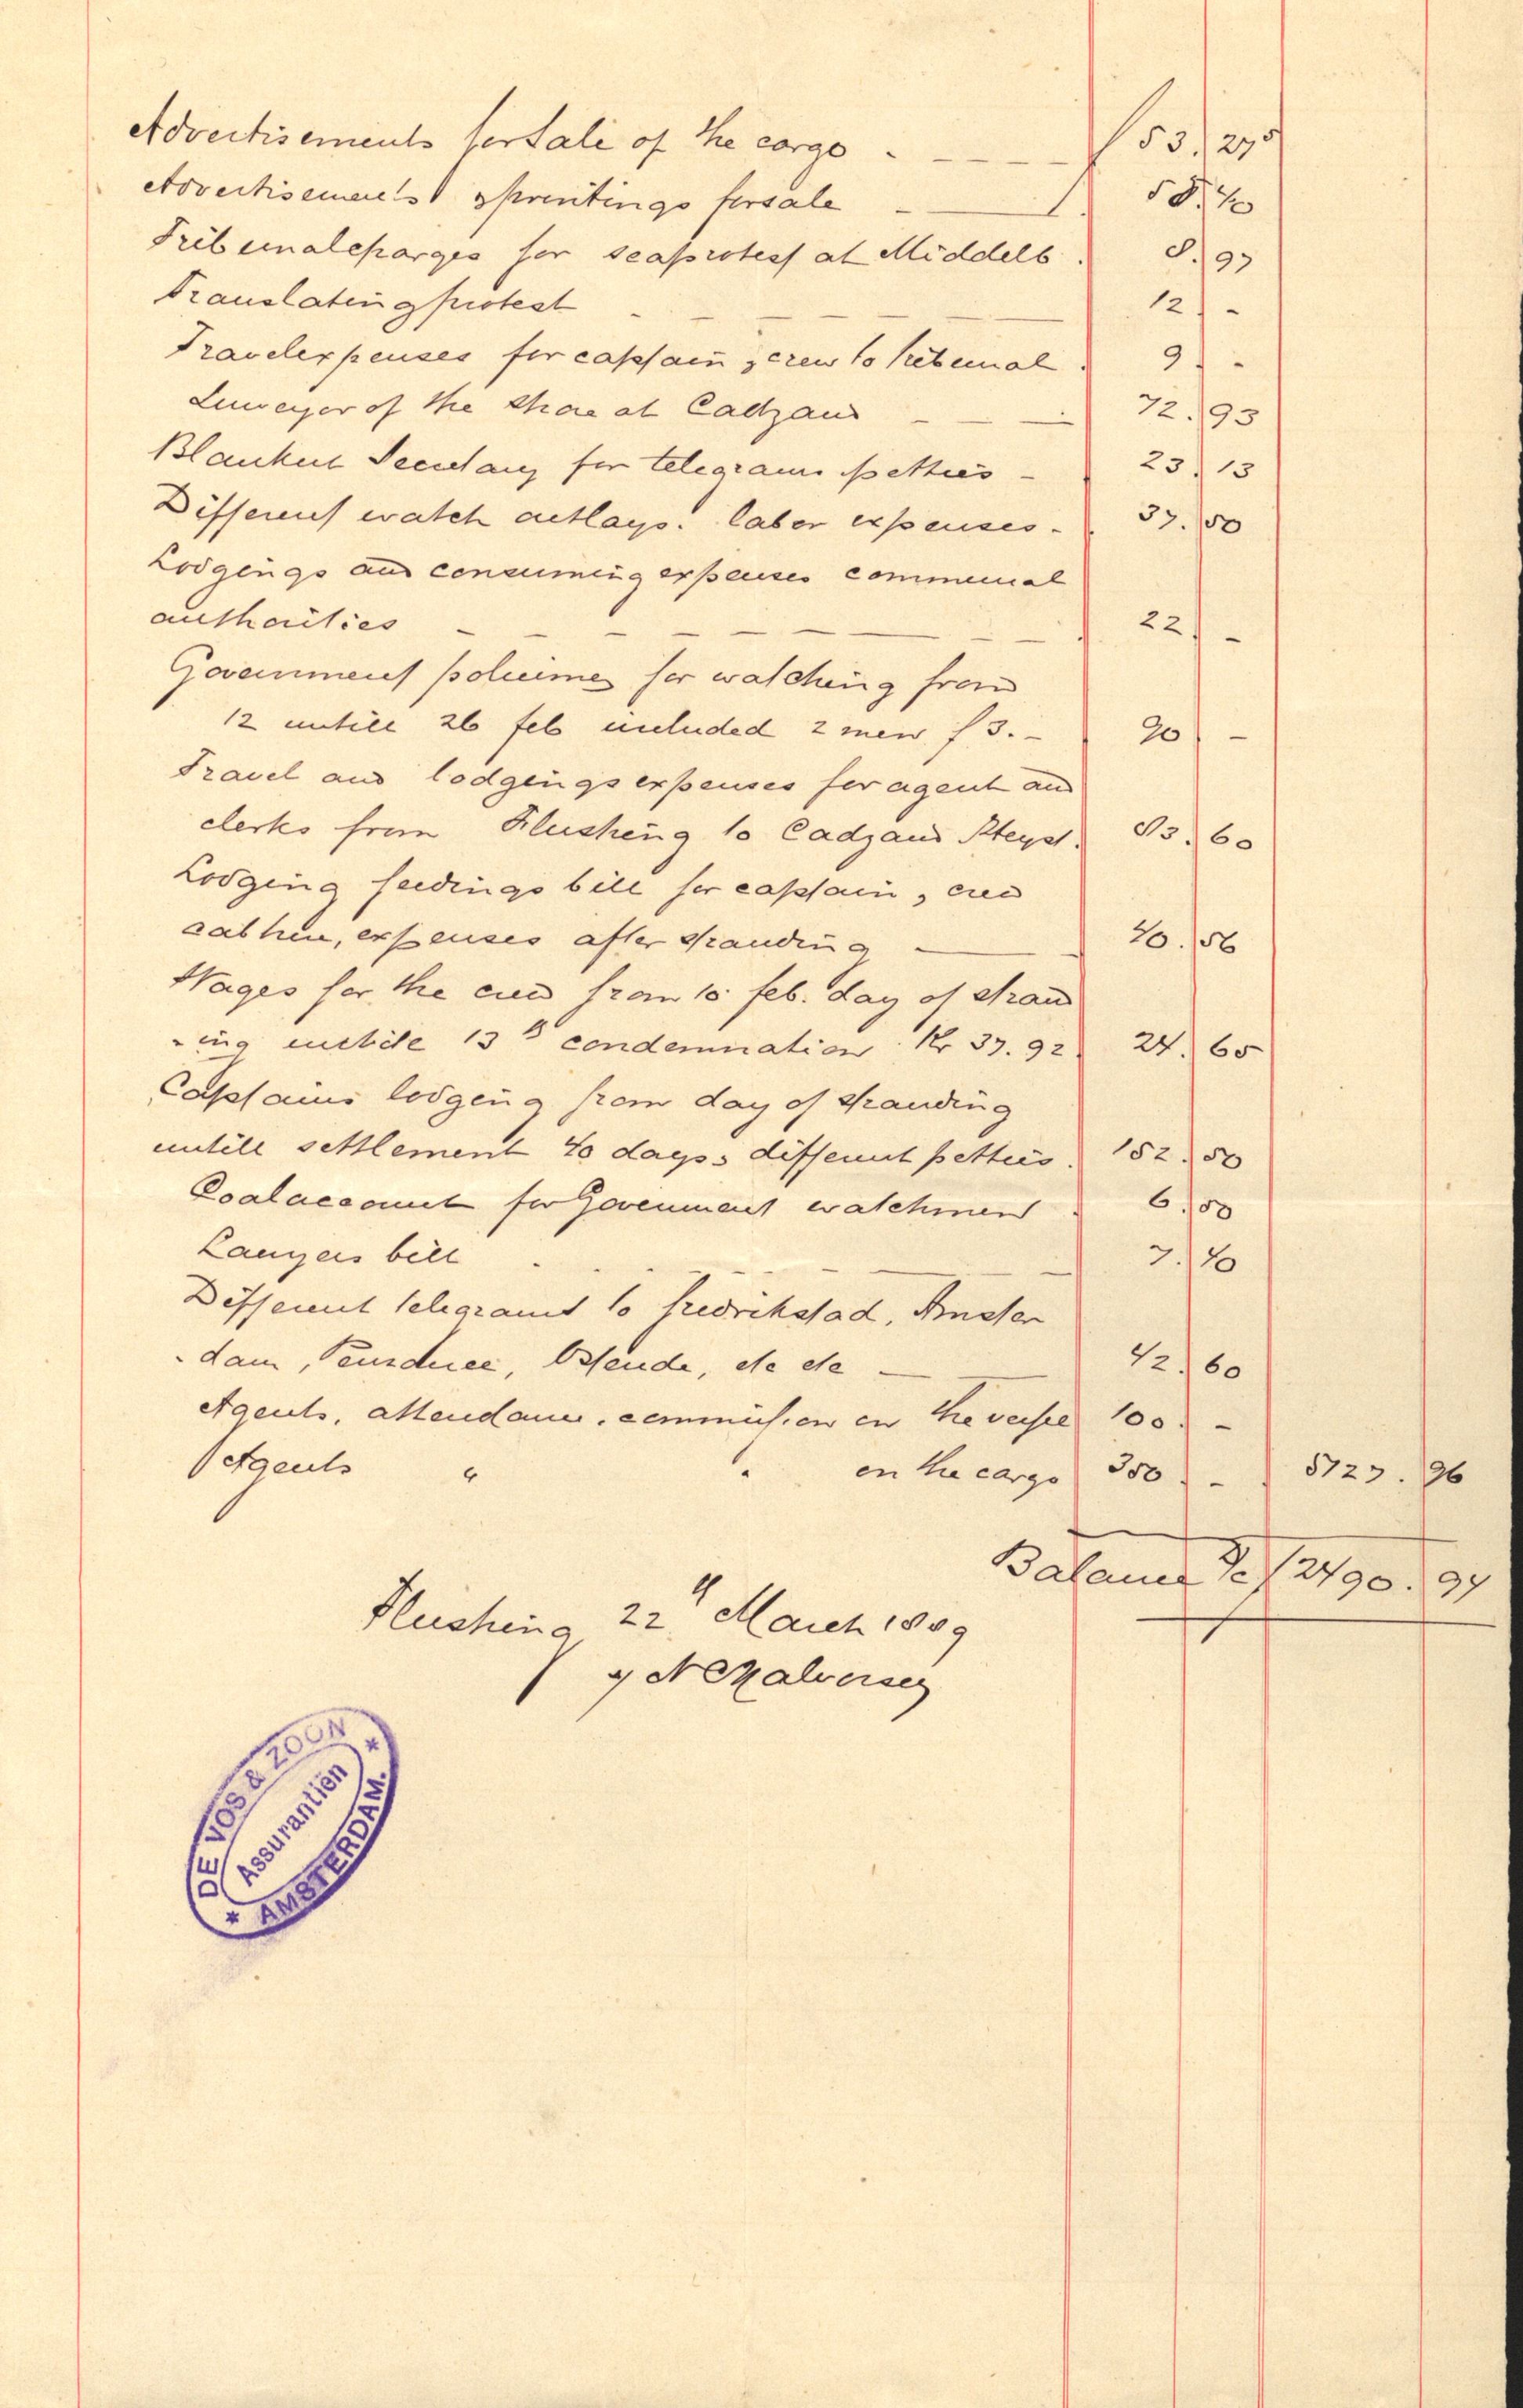 Advertisements for Sale of the cargo - f 53.27⁵
Advertisements & printings for sale - 58.40
Tribunalcharges for seaprotest at Middelb. 8.97
Translating protest 12. -
Travelexpenses for captain & crew to tribunal 9. -
of the shore at Cadzand 72.93
Blankert Secretary for telegrams petties - 23.13
Different watch outlays. labor expenses - 37.50
Lodgings and consuming expenses communal
authorities 22. -
Government policemen for watching from
12 untill 26 feb included 2 men f 3. - 90. -
Travel and lodgings expenses for agent and
clerks from Flushing to Cadzand Heyst. 83.60
Lodging feedings bill for captain, crew
expenses after stranding - 40.56
Wages for the crew from 10 feb. day of strand
-ing untile 13th condemnation Kr 37.92 24.65
Captains lodging from day of stranding
untill settlement 40 days & different petties. 152.50
Coalaccount for Government watchmen 6.50
Lawyers bill 7.40
Different telegrams to Fredrikstad, Amster
-dam, Ostende, etc etc - 42.60
Agents, attendance, commission on the vessel 100. -
Agents " " on the cargo 350. - 5727.96
Balance f 2490.94
Flushing 22d March 1889
DE VOS & ZOON
Assurantiën
* AMSTERDAM. *